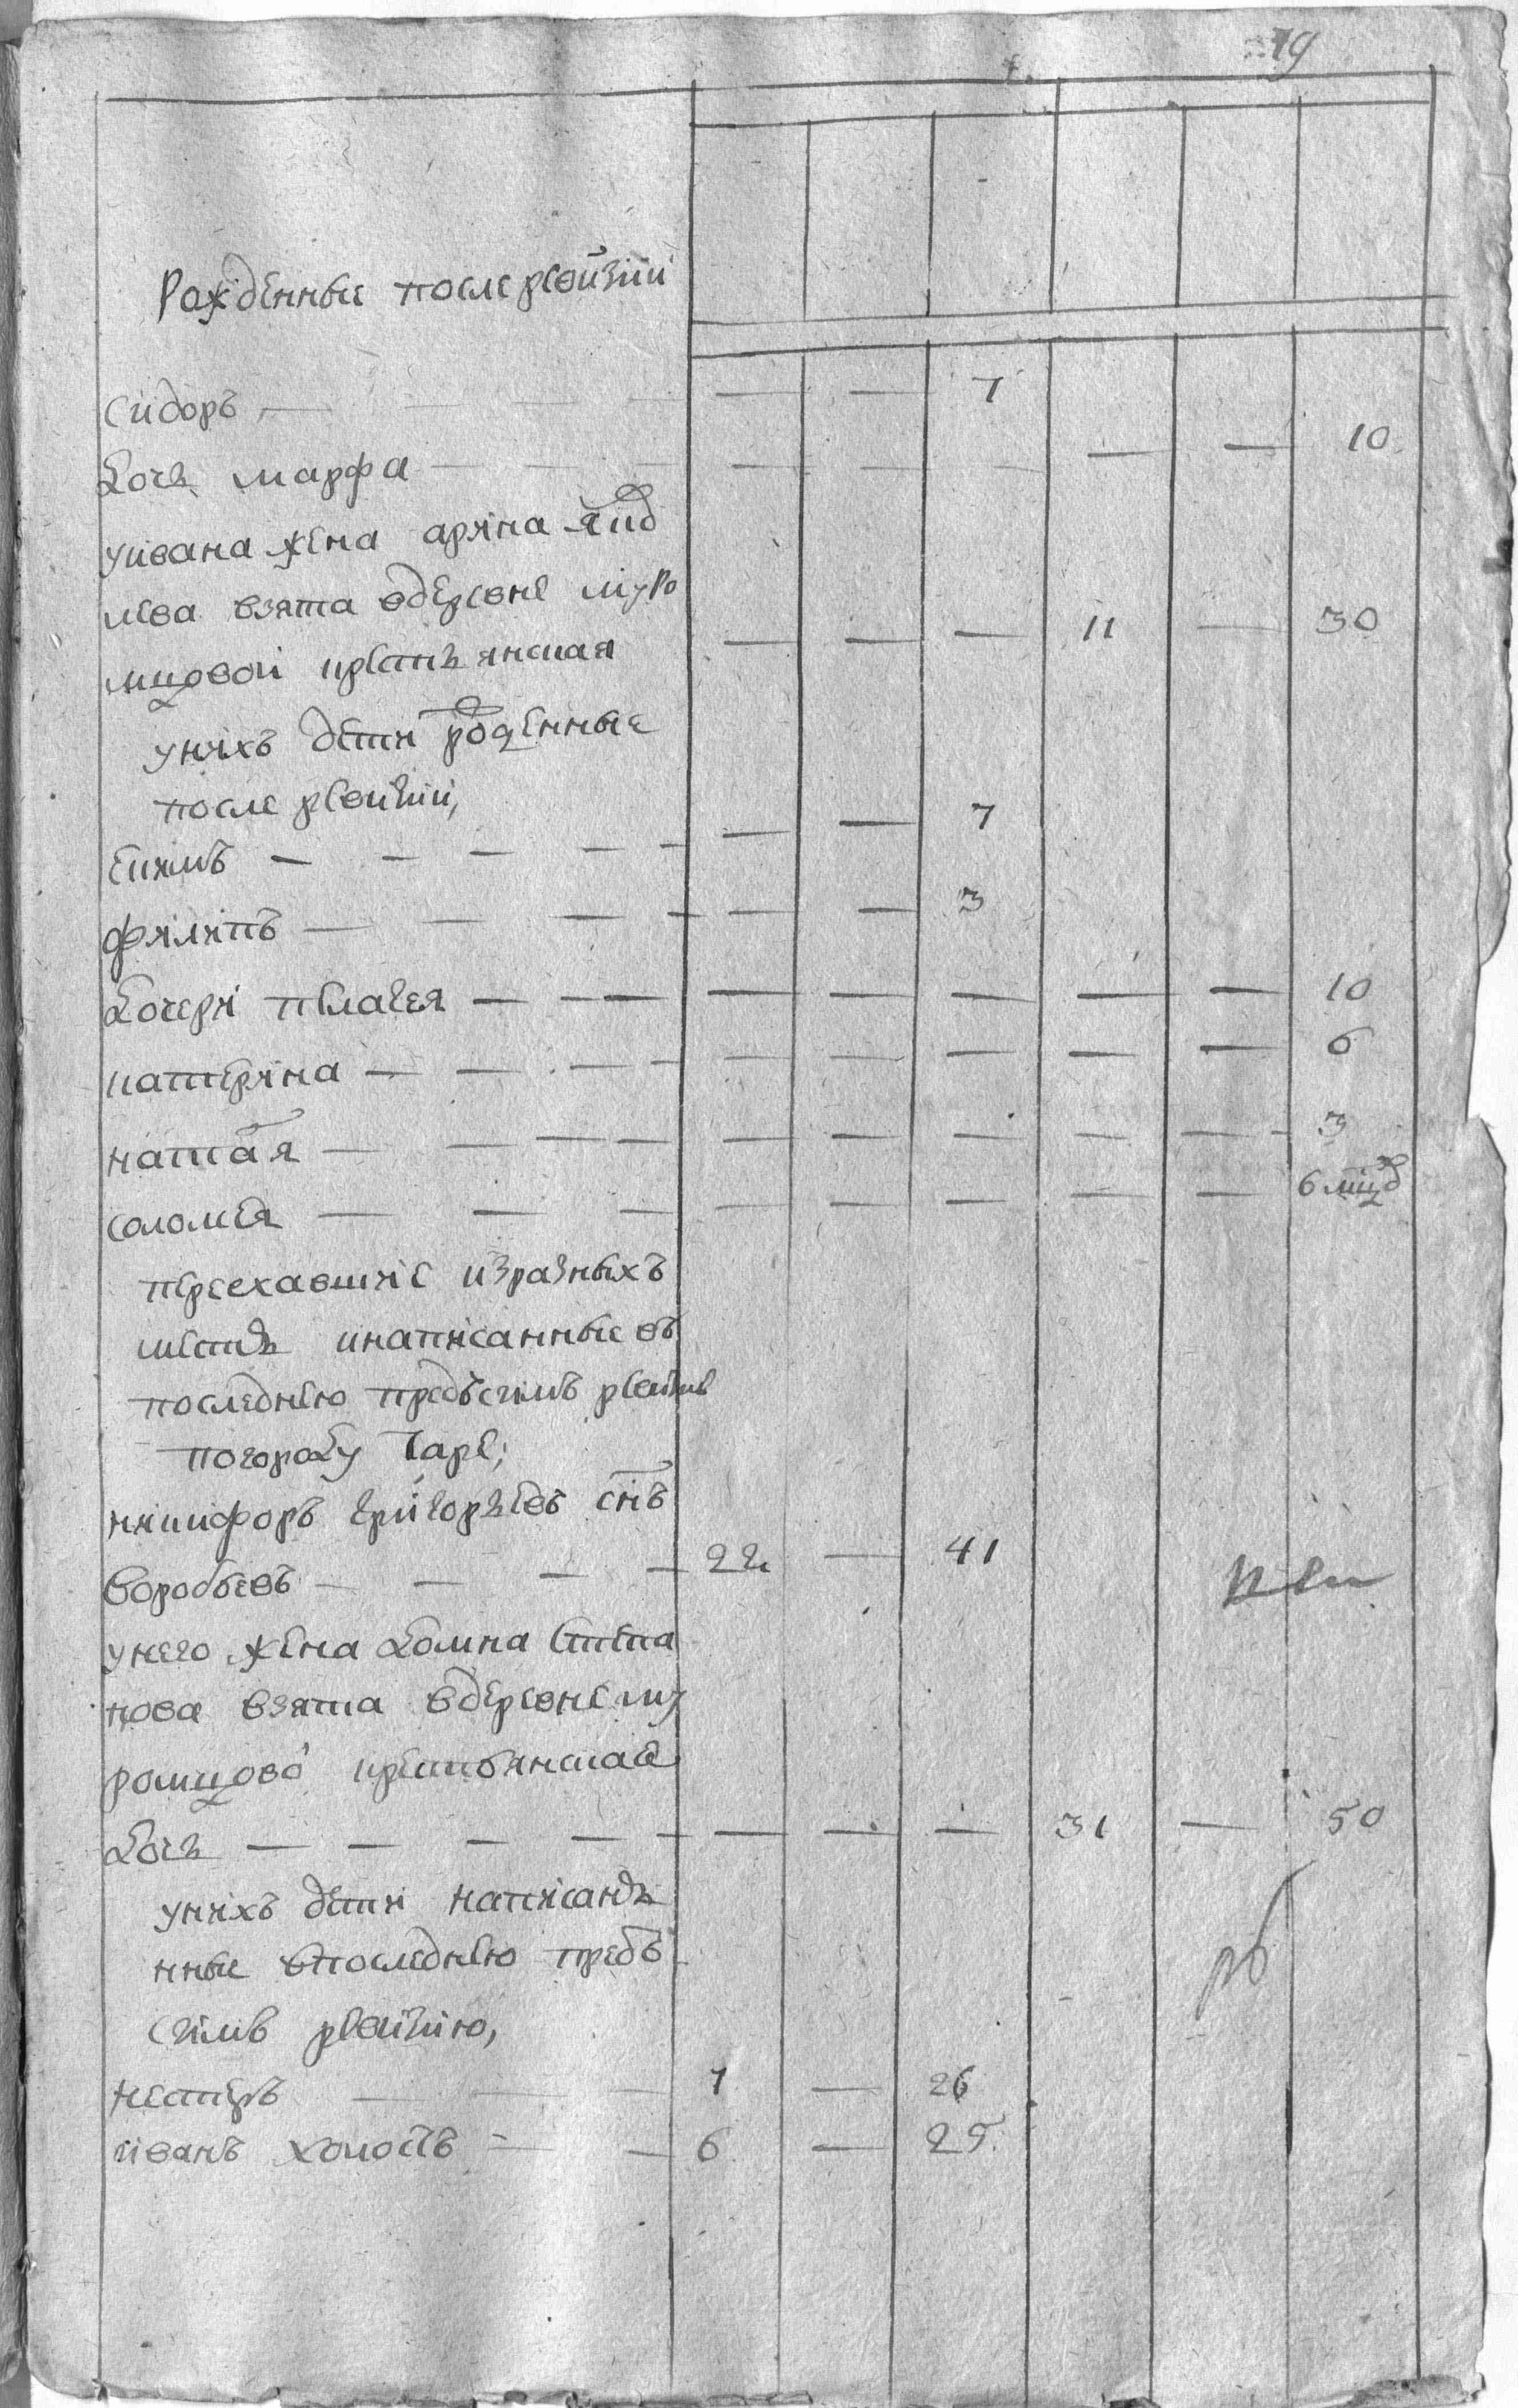 19
Рожденные после ревизии
Сидоръ — — — — — 7
Дочь марфа — — — — — — — — 10
уивана жена арина
лева взята вдеревне муро
мцовой крестьянская — — — 11 — 30
унихъ дети рожденные
после ревизии,
Екимъ — — — — — — — 7
филипъ — — — — — — 3
Дочери пелагея — — — — — — — — 10
катерина — — — — — — — — — 6
наталя — — — — — — — — — 3
соломея — — — — — — — — 6
переехавшие изразныхъ
местъ инаписанные въ
последнею предъсимъ ревизию
погороду Таре;
никифоръ григорьевъ снъ
Воробьевъ — — — — 22 — 41
унего жена Домна Степа
нова взята вдеревне му
ромцово крестьянская
Дочь — — — — — — — — 31 — 50
унихъ дети написан
ные впоследнею предъ
симъ ревизию,
нестеръ — — — 1 — 26
иванъ холостъ — — 6 — 25